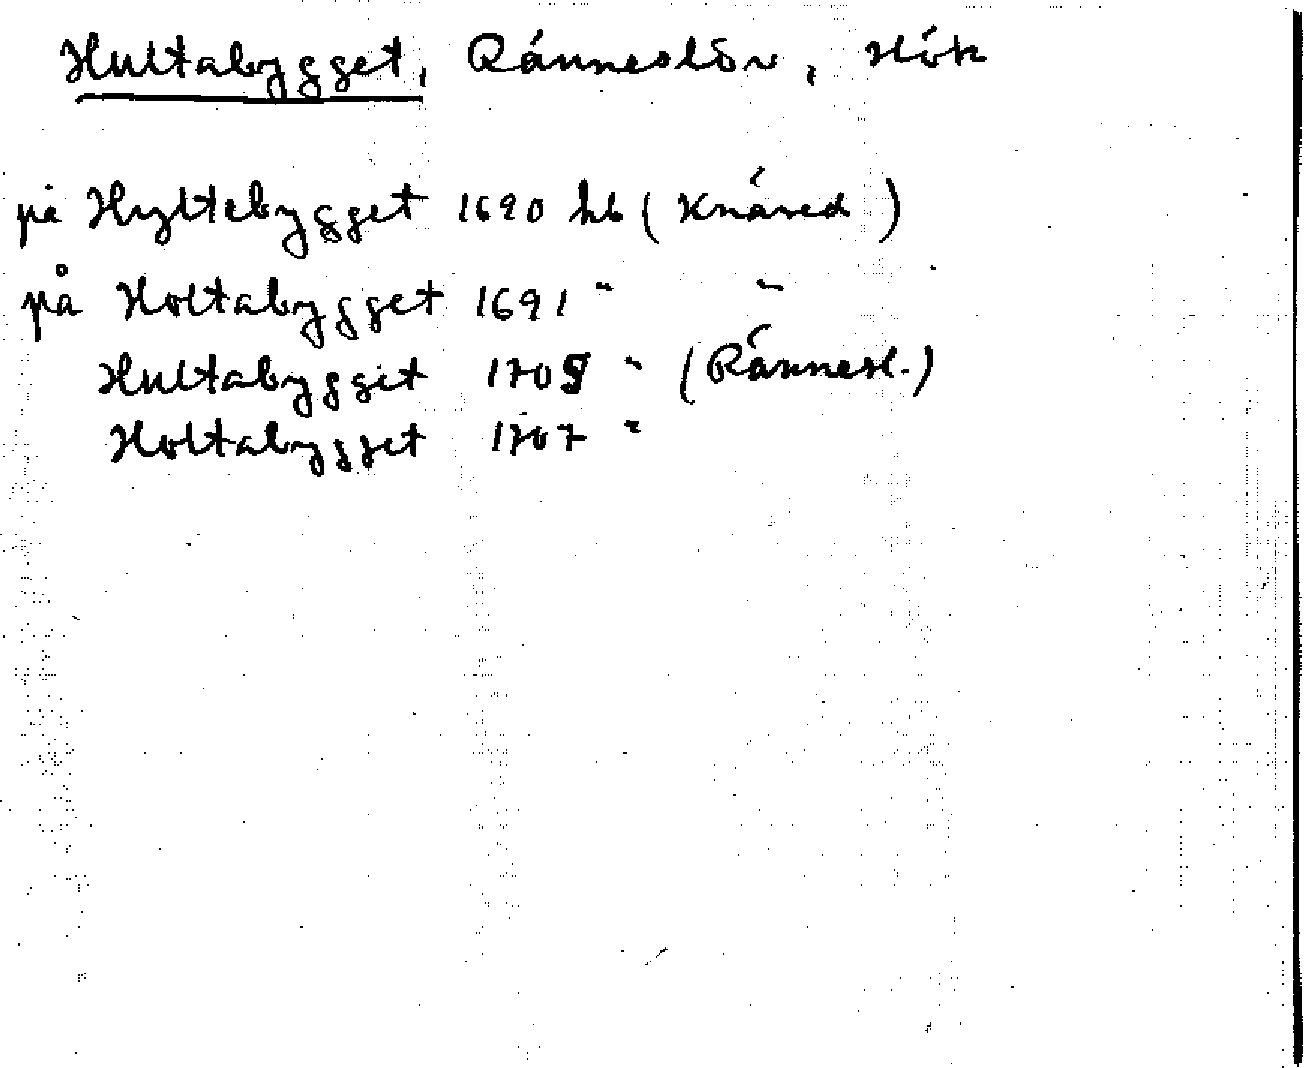 Hultabygget, Ränneslöv, Hök
på Hyltebygget 1690 hb (Knäred)
på Holtabygget 1691 " "
Hultabygget 1705 " (Rännesl.)
Holtabygget 1707 "